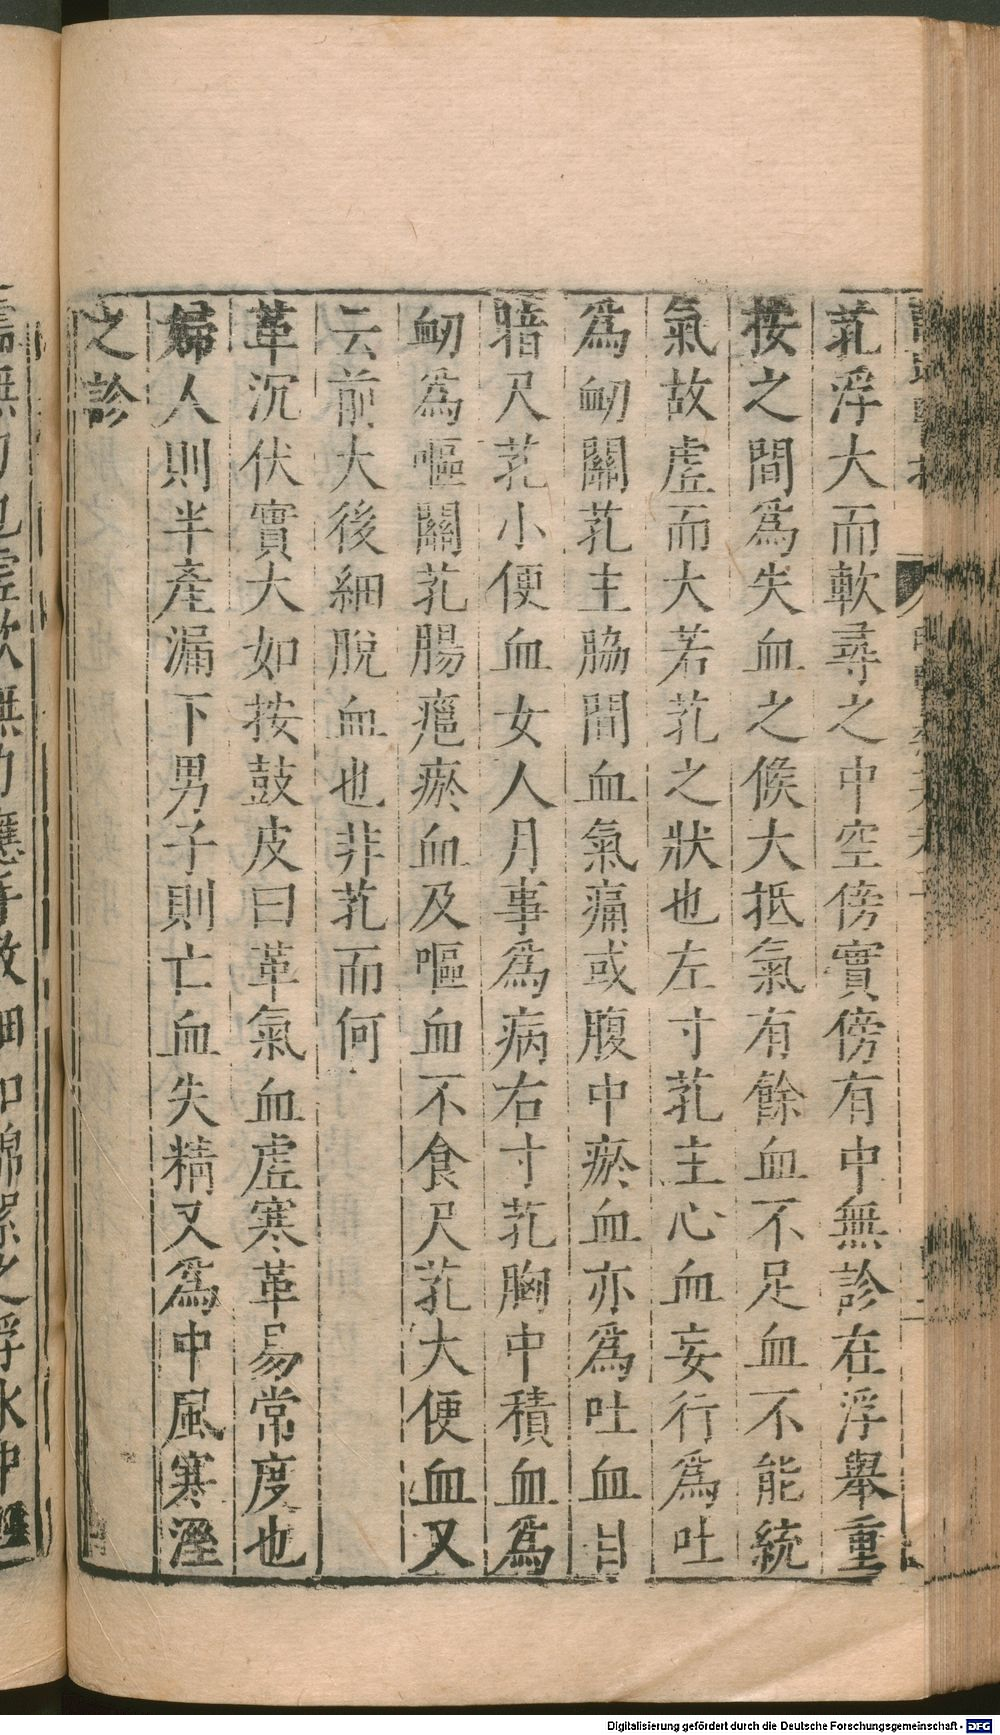 芤浮大而軟尋之中空傍實傍有中無診在浮舉重
按之間爲失血之候大抵氣有餘血不足血不能統
氣故虛而大若芤之狀也左寸芤主心血妄行爲吐
爲衂關芤主脇間血氣痛或腹中瘀血亦爲吐血目
暗尺芤小便血女人月事爲病右寸芤胸中積血爲
衂爲嘔關芤腸癰瘀血及嘔血不食尺芤大便血又
云前大後細脫血也非芤而何
革沉伏實大如按鼓皮曰革氣血虛寒革易常度也
婦人則半產漏下男子則亡血失精又爲中風寒溼
之診
Digitalisierung gefördert durch die Deutsche Forschungsgemeinschaft - DFG